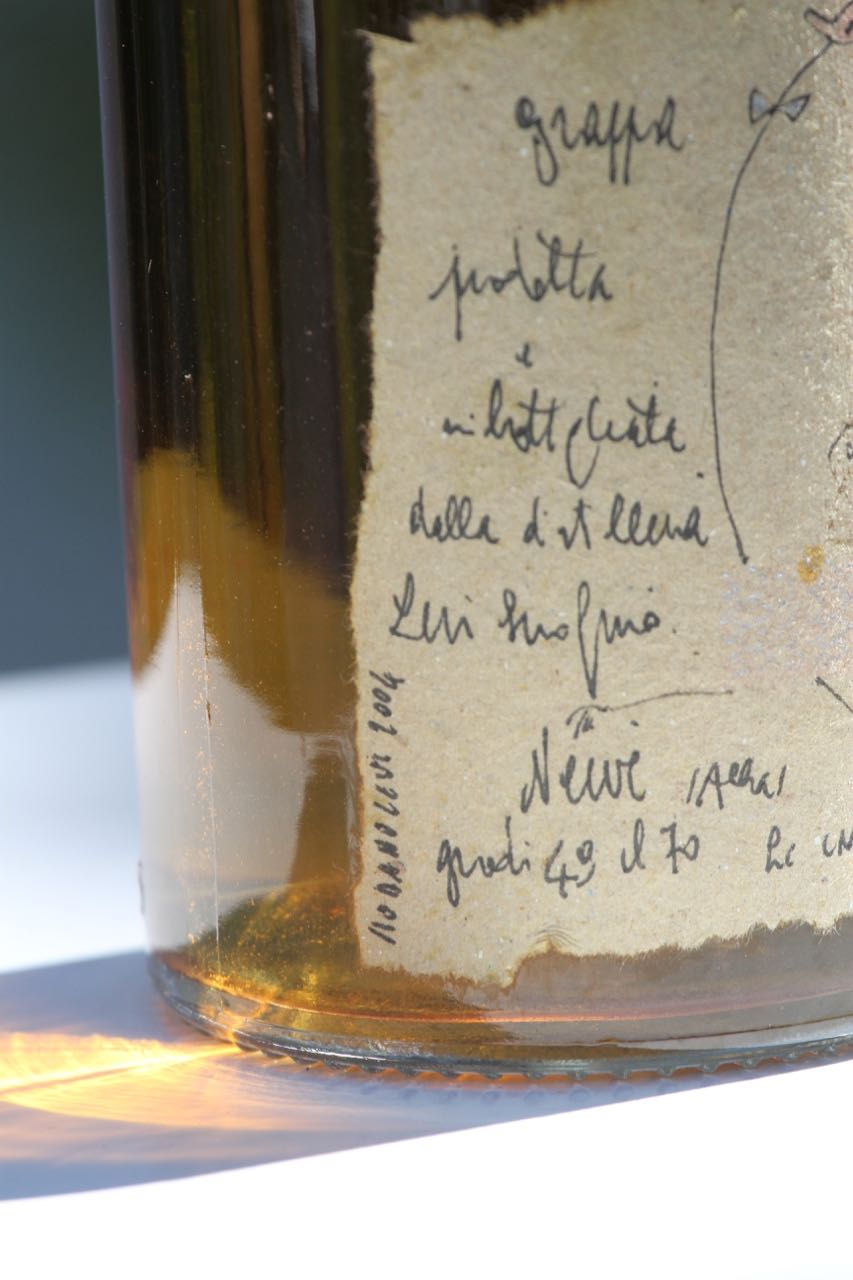 grappa
prodotta
e
imbottigliata
della distilleria
Levi Serafino.
in
Neive
gradi 49 cl 70
ROMANO LEVI 2004